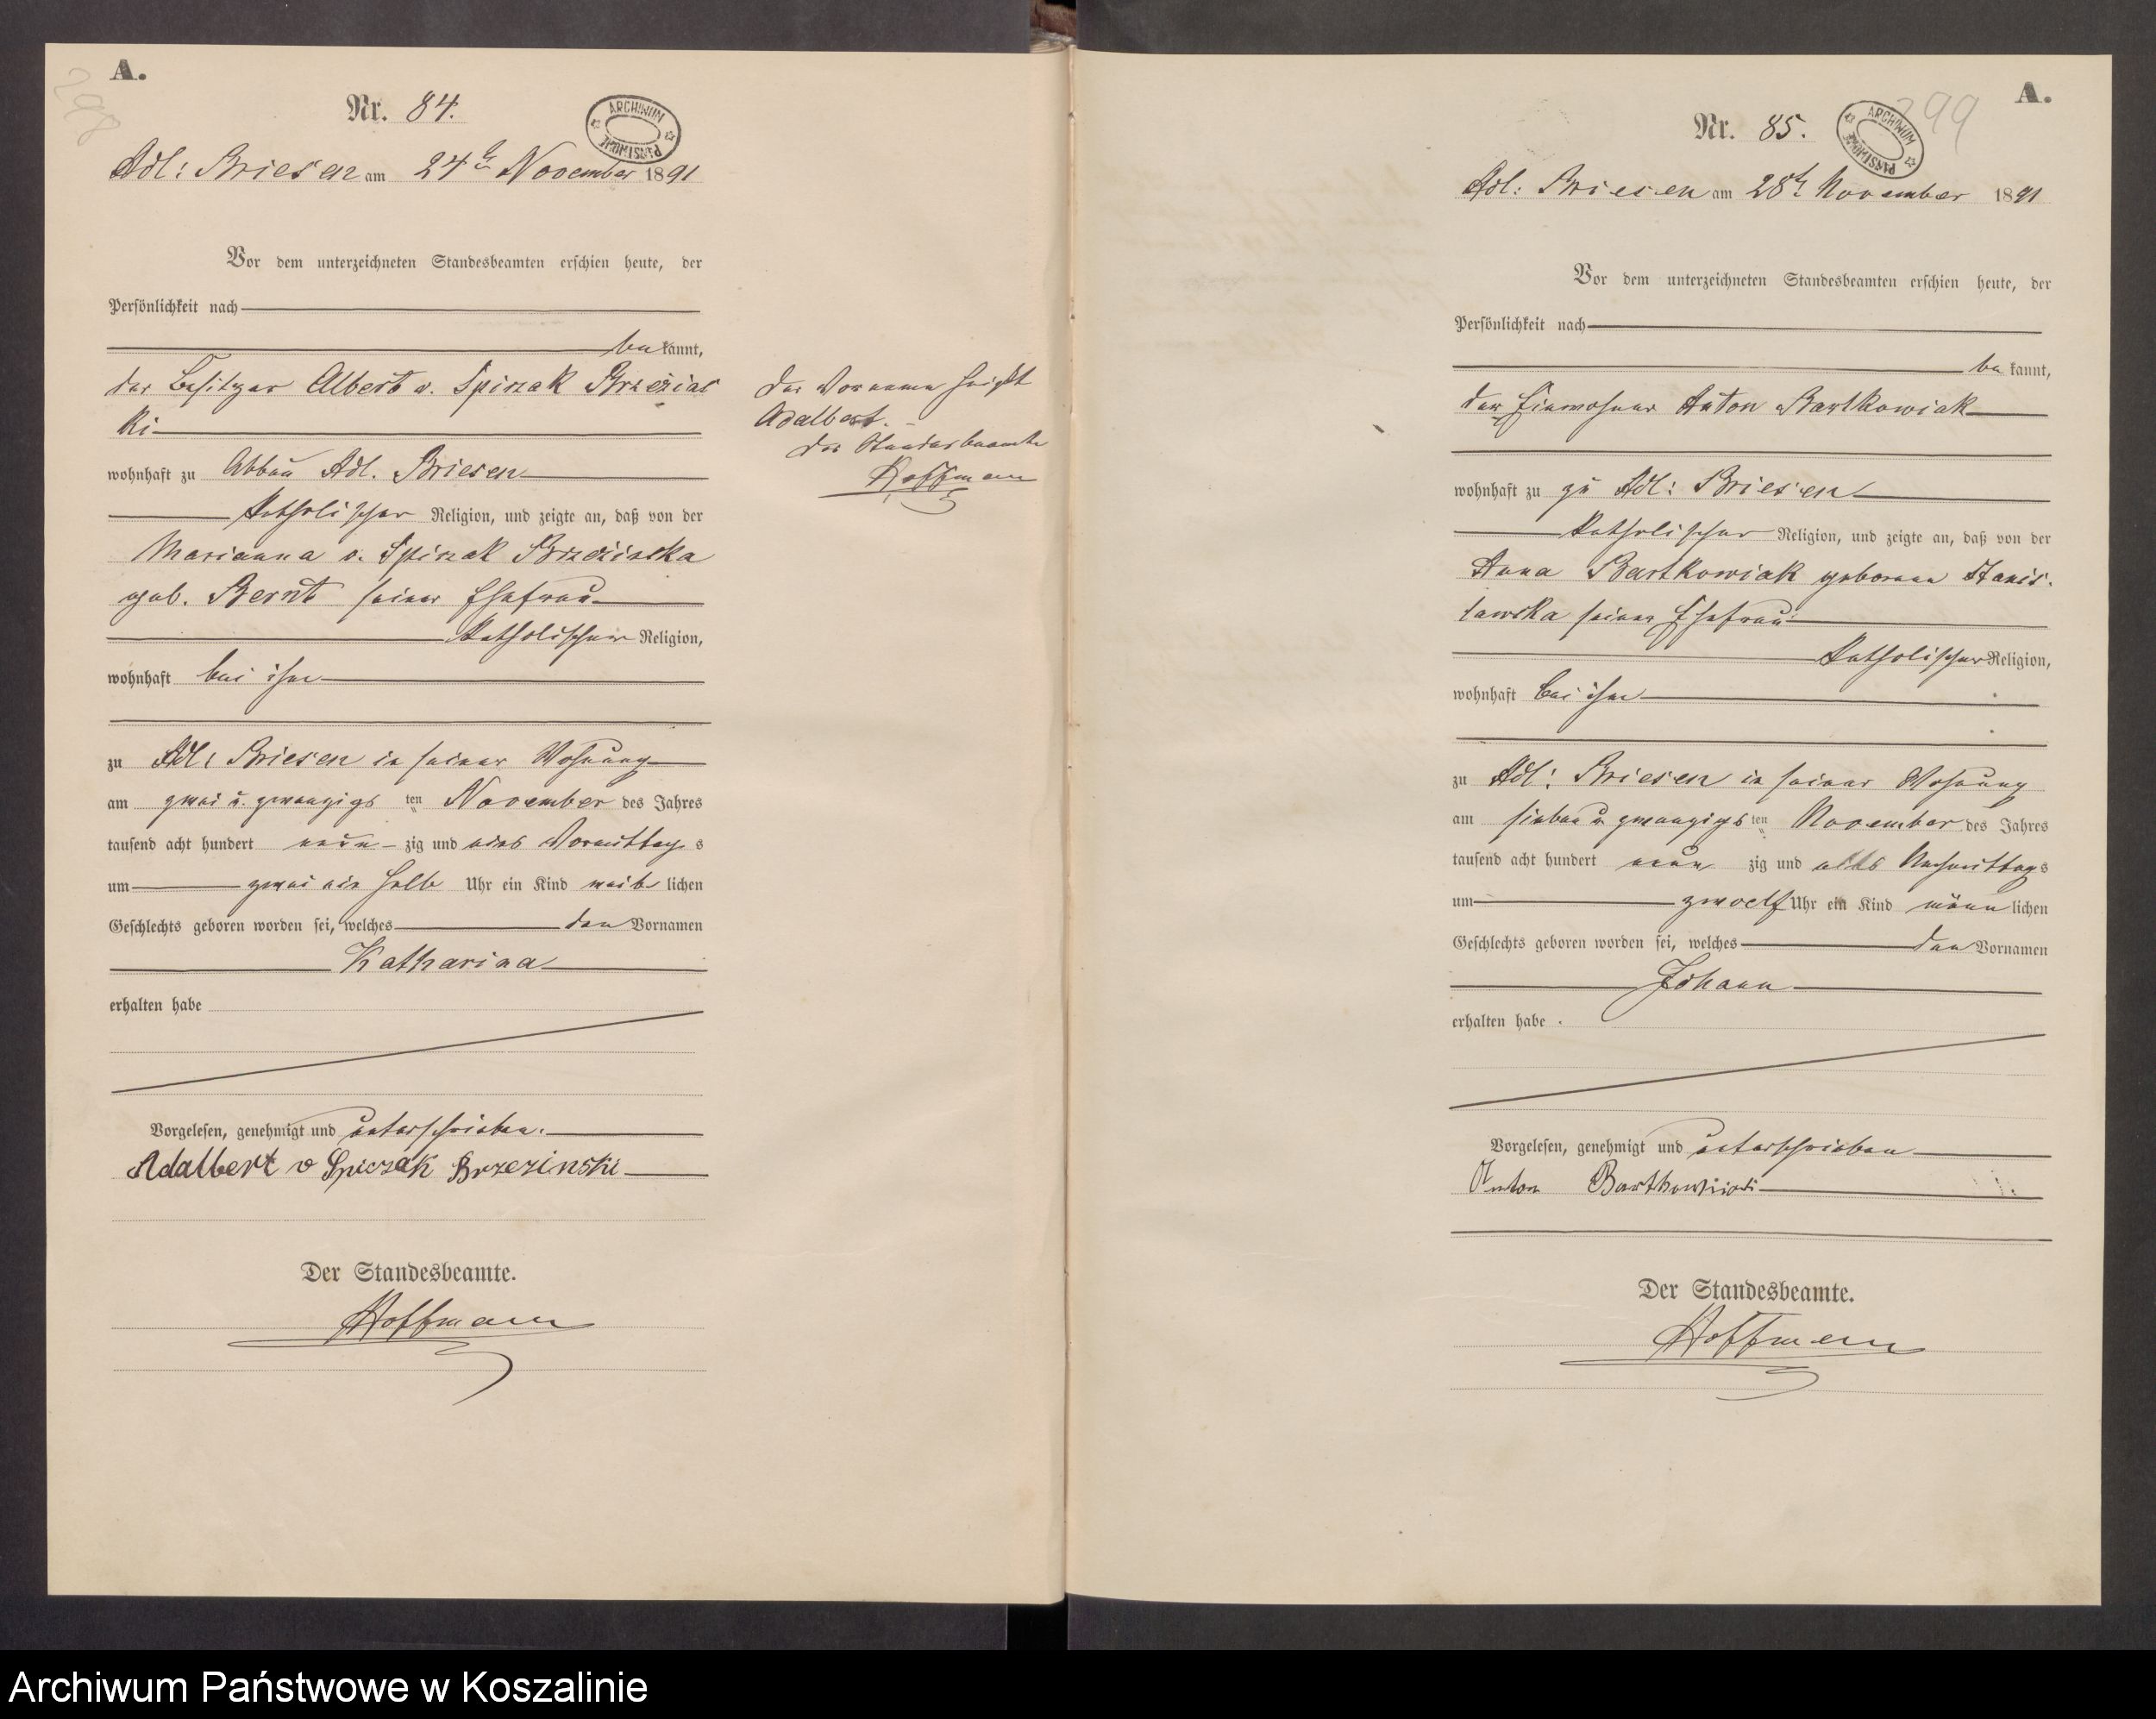 298
A.
Nr. 84.
ARCHIWUM PAŃSTWOWE
Adl: Briesen am 24t November 1891
Vor dem unterzeichneten Standesbeamten erschien heute, der
Persönlichkeit nach
be kannt,
der Besitzer Albert v. Spiczak Brzezins
ki
wohnhaft zu Abbau Adl. Briesen
katholischer Religion, und zeigte an, daß von der
Marianna v. Spiczak Brzezinska
geb. Bernt seiner Ehefrau
katholischer Religion,
wohnhaft bei ihm
zu Adl: Briesen in seiner Wohnung
am zwei u. zwanzigs ten November des Jahres
tausend acht hundert neun zig und eins Vormittag s
um zwei ein halb Uhr ein Kind weib lichen
Geschlechts geboren worden sei, welches den Vornamen
Katharina
erhalten habe
Vorgelesen, genehmigt und unterschrieben.
Adalbert v Spiczak Brzezinski
Der Standesbeamte.
Hoffmann
Der Vorname heißt
Adalbert.
Der Standesbeamte
Hoffmann
299
A.
Nr. 85.
ARCHIWUM PAŃSTWOWE
Adl: Briesen am 28t November 1891
Vor dem unterzeichneten Standesbeamten erschien heute, der
Persönlichkeit nach
be kannt,
der Einwohner Anton Bartkowiak
wohnhaft zu zu Adl: Briesen
katholischer Religion, und zeigte an, daß von der
Anna Bartkowiak geborene Stanis-
lawska seiner Ehefrau
katholischer Religion,
wohnhaft bei ihm
zu Adl: Briesen in seiner Wohnung
am sieben u zwanzigs ten November des Jahres
tausend acht hundert neun zig und eins Nachmittags
um zwoelf Uhr ein Kind männ lichen
Geschlechts geboren worden sei, welches den Vornamen
Johann
erhalten habe.
Vorgelesen, genehmigt und unterschrieben
Anton
Der Standesbeamte.
Hoffmann
Archiwum Państwowe w Koszalinie